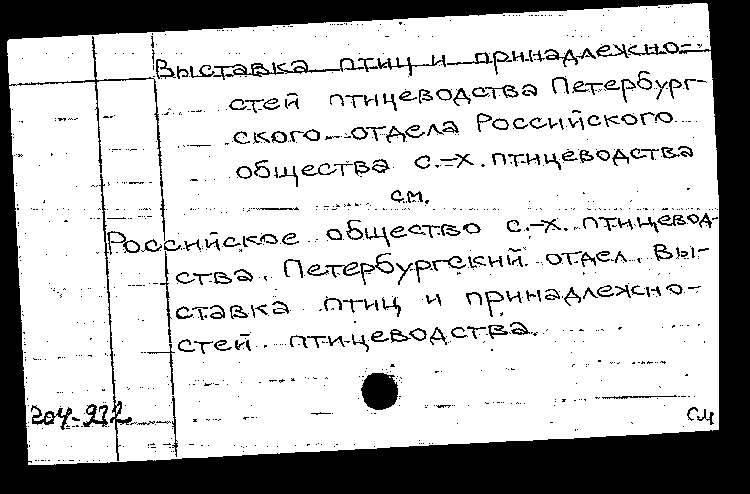 Выставка птиц и принадлежно-
стей птицеводства Петербург-
ского отдела Российского
общества с.-х. птицеводства
см.
Российское общество с.-х. птицевод-
ства. Петербургский отдел. Вы-
ставка птиц и принадлежно-
стей птицеводства.
204-932